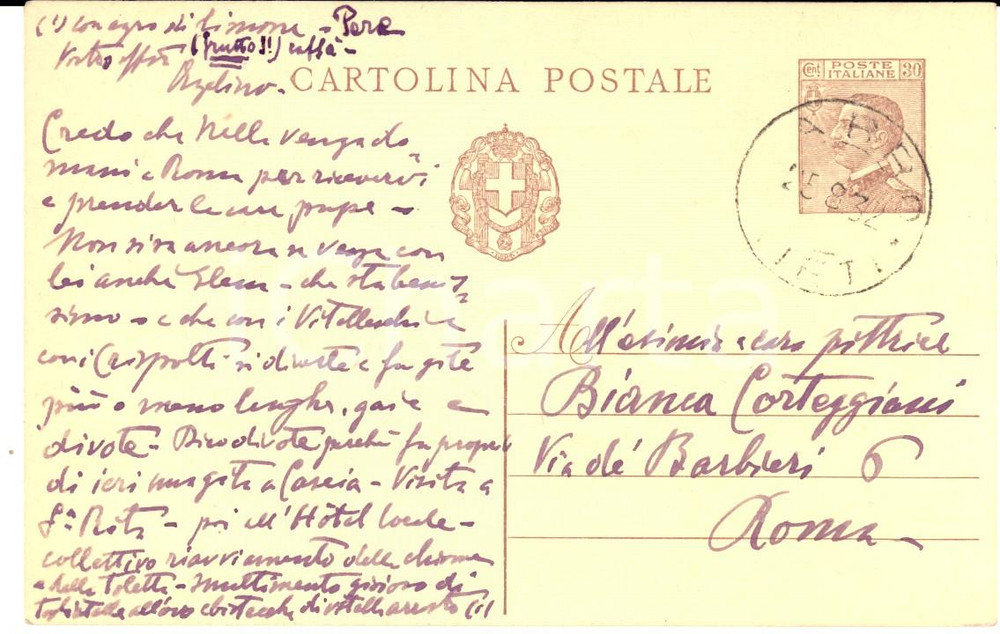 (1) con agro di limone - Pera
Vostro affto (frutto!!) caffè -
Angelino -
CARTOLINA POSTALE
Cent POSTE ITALIANE 30
RIETI
25 8 32
Credo che Nella venga do
mani a Roma per ricevervi
e prender le care pupe -
Non si sa ancora se venga con
lei anche Elena - che sta benis
simo - e che con i Vitelleschi e
con i Crispolti si diverte e fa gite
più o meno lunghe, gaie e
divote - Dico divote perchè fu proprio
di ieri una gita a Cascia - Visita a
Sta Rita - poi all'Hôtel locale -
collettivo riavviamento delle chiome
e della toletta -
gioioso di
all'ovo e bistecche di vitella arrosto (1)
All'esimia e cara pittrice
Bianca Corteggiani
Via dé Barbieri 6
Roma -